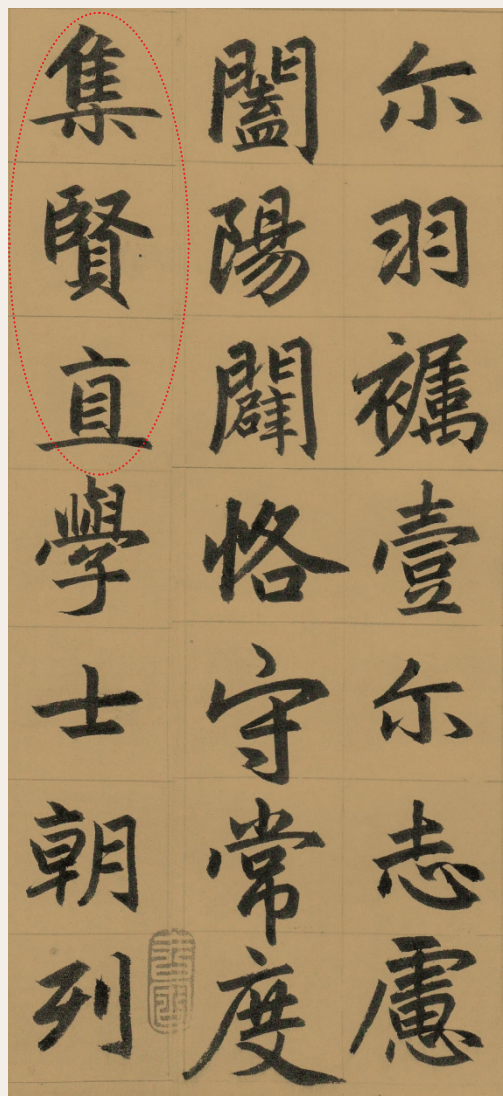 尓羽壹尓志慮
闔陽闢恪守常度
集賢直學士朝列